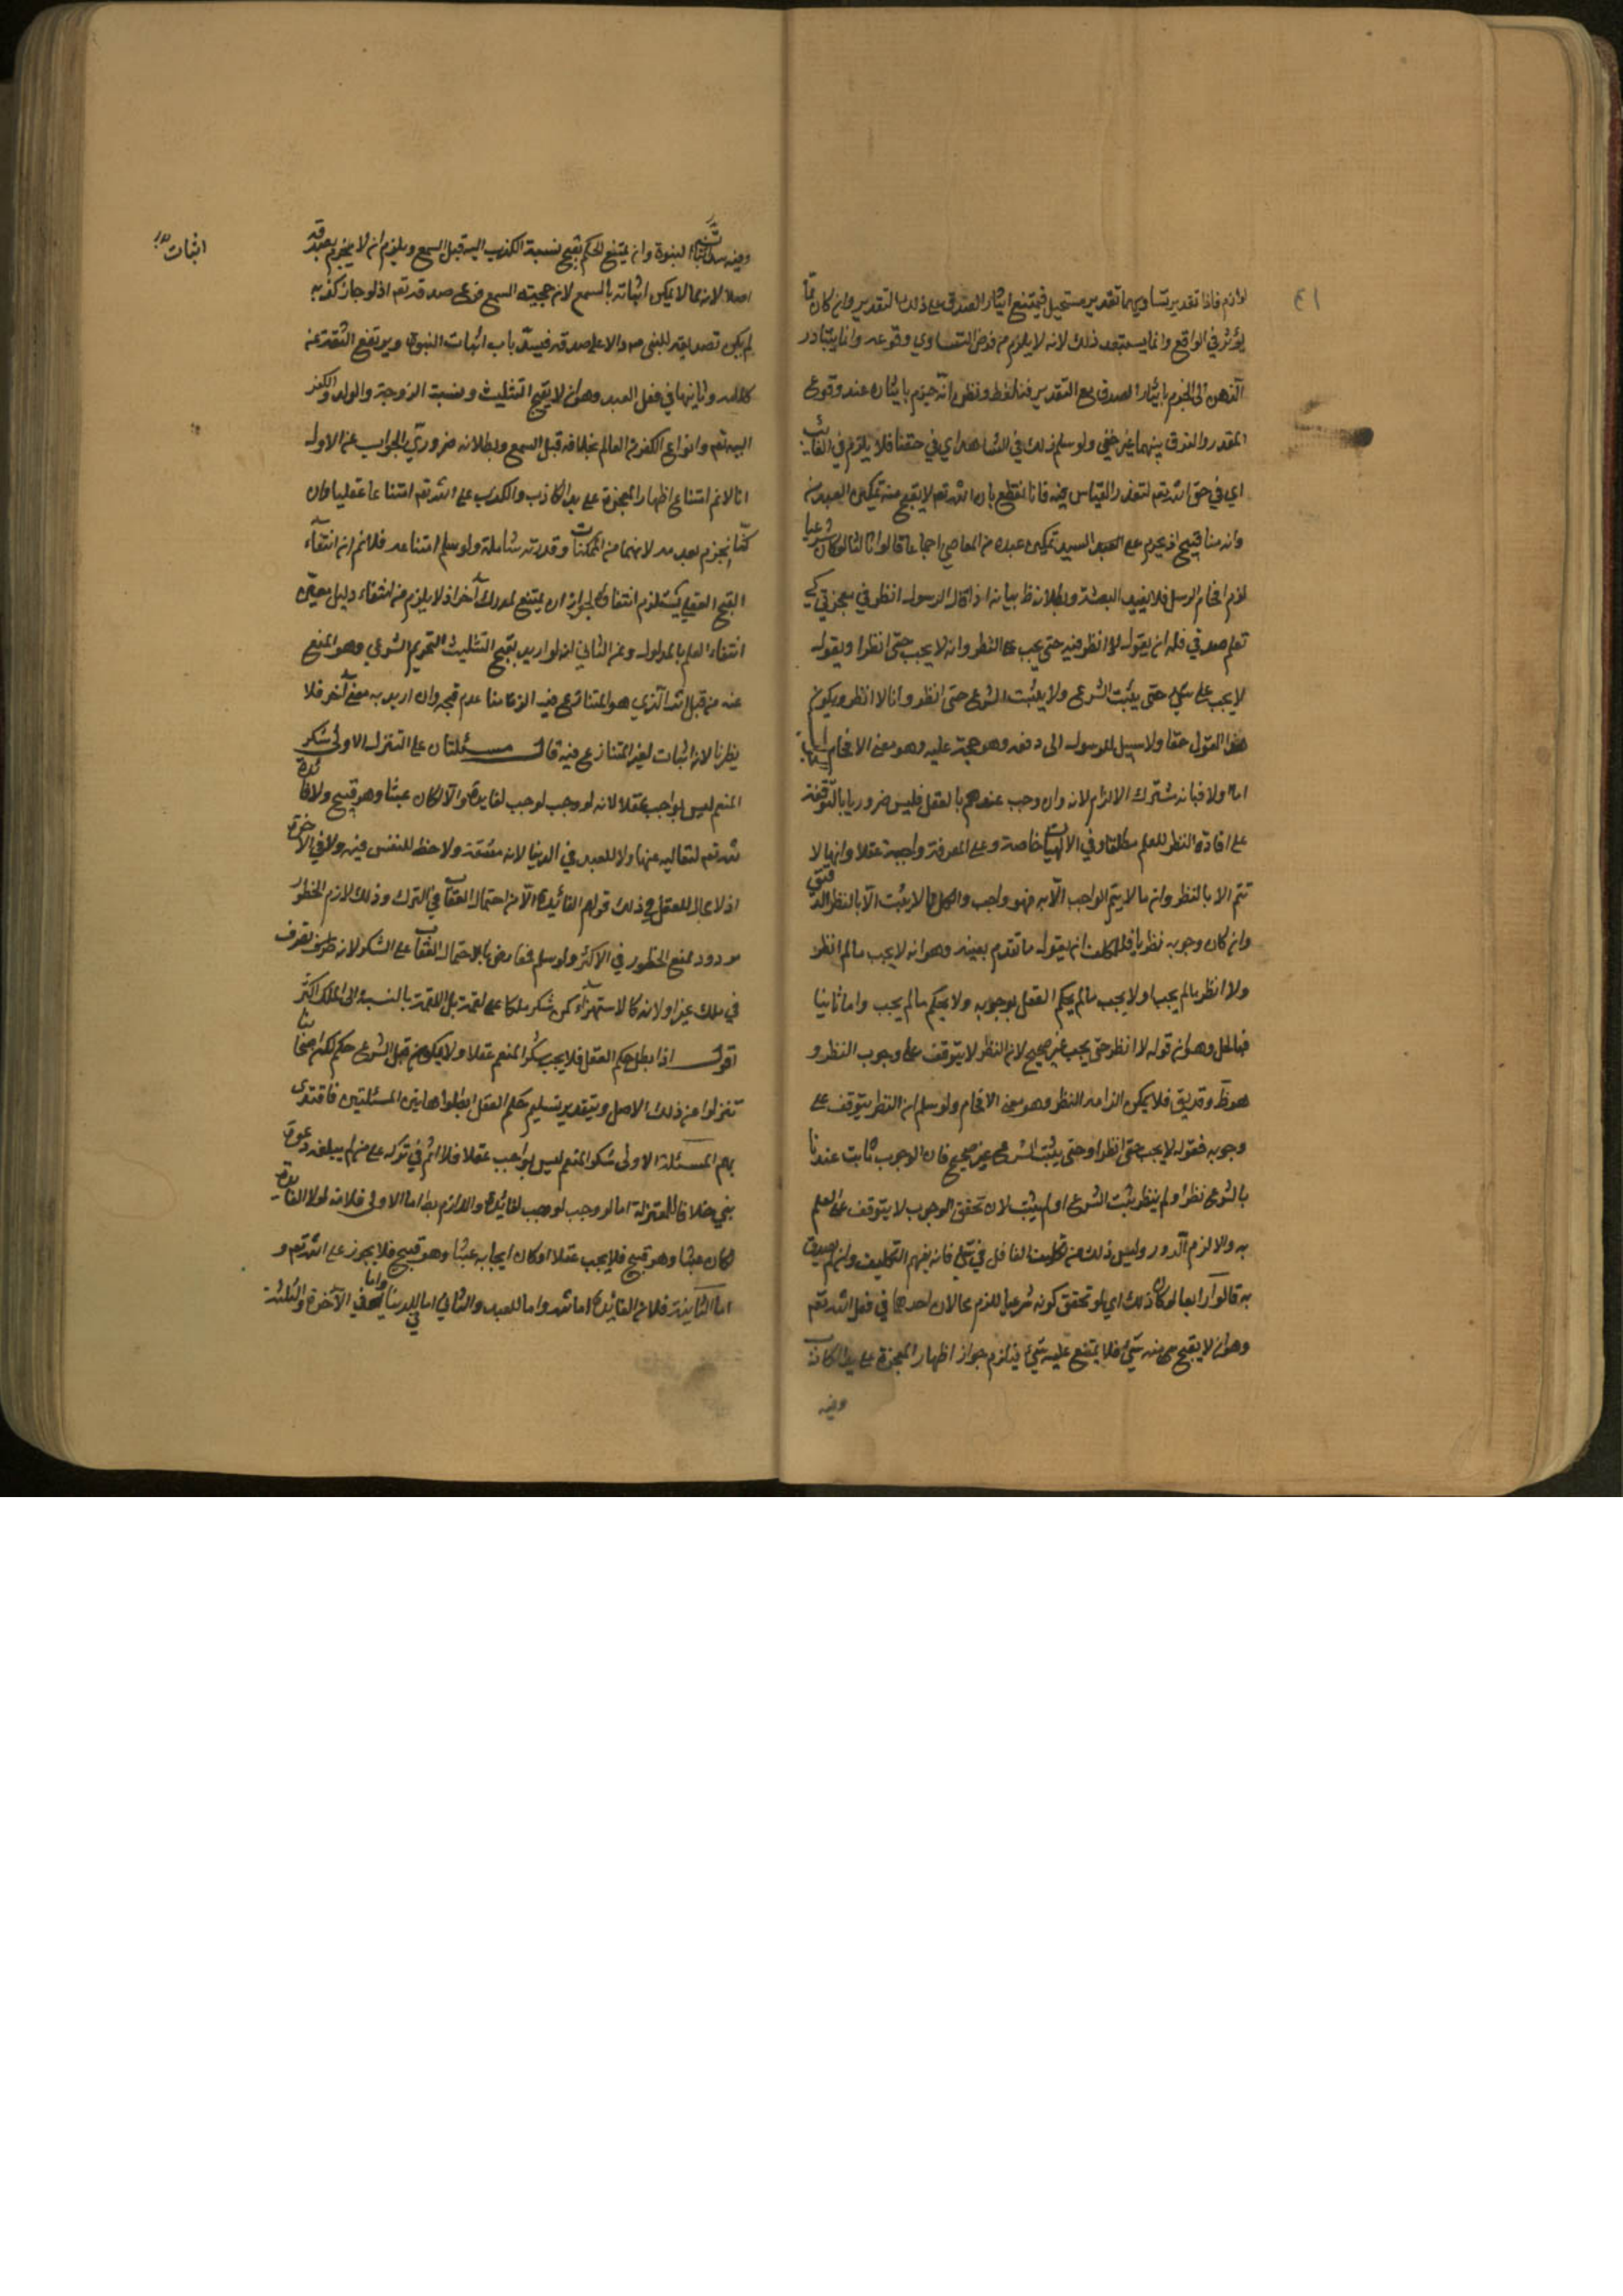 ٤١
لوازم فاذا تقدير تساويهما تقدير مستحيل فيمتنع ايثار الصدق على ذلك التقدير وان كان مما
يؤثر في الواقع وانما يستبعد ذلك لانه لا يلزم من فرض التساوي وقوعه وانما يتبادر
الذهن الى الجزم بايثار الصدق مع التقدير فنا لغط ونظن انه جزم بايثاره عند وقوع
المقدر والفرق بينهما غير خفي ولو سلم ذلك في الشاهد اي في حقنا فلا يلزم في الغائب
اي في حق الله تعم لتعذر القياس فيه فانا نقطع بان الله تعم لا يقبح منه تمكين العبد من
وانه منا قبيح اذ يحرم على السيد تمكين عبده من المعاصي اجماعا قالوا ثالثا لو كان شرعيا
لزم افحام الرسل فلا يفيد البعثة وبطلانه ظ بيانه اذا قال الرسول انظر في معجزتي كي
تعلم صدقي فله ان يقول لا انظر فيه حتى يجب على النظر وانه لا يجب حتى انظر او يقول
لا يجب على حتى يثبت الشرع ولا يثبت الشرع حتى انظر وانا لا انظر ويكون
هذا القول حقا ولا سبيل للرسول الى دفعه وهو حجة عليه وهو معنى الافحام
اما اولا فبانه مشترك الالزام لانه وان وجب عندهم بالعقل فليس ضروريا بالتوقفه
على افادة النظر للعلم مطلقا وفي الالهيات خاصة وعلى المعرفة واجبة عقلا وانها لا
تتم الا بالنظر وان ما لا يتم الواجب الا به فهو واجب والكل مما لا يثبت الا بالنظر الدقيق
وان كان وجوبه نظريا فللمكلف ان يقول ما تقدم بعينه وهو انه لا يجب ما لم انظر
ولا انظر ما لم يجب او لا يجب ما لم يحكم العقل بوجوبه ولا يحكم ما لم يجب واما ثانيا
فبالحل وهو ان قوله لا انظر حتى يجب غير صحيح لان النظر لا يتوقف على وجوب النظر و
هو ظ وقد يق فلا يمكن الزامه النظر وهو معنى الافحام ولو سلم ان النظر يتوقف على
وجوبه فقوله لا يجب حتى انظر او حتى يثبت الشرع غير صحيح فان الوجوب ثابت عندنا
بالشرع نظر او لم ينظر ثبت الشرع او لم يثبت لان تحقق الوجوب لا يتوقف على العلم
به والا لزم الدور وليس ذلك من تكليف الغافل في شئ فانه يفهم التكليف وان لم يصدق
به قالوا رابعا لو كان ذلك اي لو تحقق كونه شرعيا للزم محالان احدهما في فعل الله تعم
وهو ان لا يقبح منه شئ فلا يمتنع عليه شئ فيلزم جواز اظهار المعجزة على يد الكاذب
وفيه
وفيه سد باب اثبات النبوة وان يمتنع الحكم بقبح نسبة الكذب اليه قبل السمع ويلزم ان لا يجزم بصدقه
اثبات
اصلا لانه مما لا يمكن اثباته بالسمع لان حجية السمع فرع صدقه تعم اذ لو جاز كذبه
لم يكن تصديقه للنبي دالا على صدقه فينسد باب اثبات النبوة ويرتفع الثقة عن
كلامه وثانيهما في فعل العبد وهو ان لا يقبح التثليث ونسبة الزوجة والولد والكفر
اليه تعم وانواع الكفر من العالم بخلافه قبل السمع وبطلانه ضروري والجواب عن الاول
انا لا نم امتناع اظهار المعجزة على يد الكاذب والكذب على الله تعم امتناعا عقليا وان
كنا نجزم بعدمه لانهما من الممكنات وقدرته شاملة ولو سلم امتناعه فلا نم ان انتفاء
القبح العقلي يستلزم انتفائه لجواز ان يمتنع لمدرك آخر اذ لا يلزم من انتفاء دليل معين
انتفاء العلم بالمدلول وعن الثاني انه لو اريد بقبح التثليث التحريم الشرعي وهو المنع
عنه من قبل الله الذي هو المتنازع فيه الزمنا عدم قبحه وان اريد به معنى آخر فلا
يضرنا لانه اثبات لغير المتنازع فيه قال مسئلتان على التنزل الاولى شكر
المنعم ليس بواجب عقلا لانه لو وجب لوجب لفايدة والا لكان عبثا وهو قبيح ولا فائدة
لله تعم لتعاليه عنها ولا للعبد في الدنيا لانه مشقة ولا حظ للنفس فيه ولا في الآخرة
اذ لا مجال للعقل في ذلك قولهم الفائدة الامن من احتمال العقاب في الترك وذلك لازم الخطور
مردود بمنع الخطور في الاكثر ولو سلم فمعارض باحتمال العقاب على الشكر لانه تصرف
في ملك غيره او لانه كالاستهزاء كمن شكر ملكا على لقمة بل اللقمة بالنسبة الى الملك اكثر
اقول اذا بطل حكم العقل فلا يجب شكر المنعم عقلا ولا يكون قبل الشرع حكم لكن اصحابنا
تنزلوا عن ذلك الاصل وبتقدير تسليم حكم العقل ابطلوا هاتين المسئلتين فاقتدى
بهم المسئلة الاولى شكر المنعم ليس بواجب عقلا فلا اثم في تركه على من لم يبلغه دعوة
نبي خلافا للمعتزلة اما لو وجب لوجب لفائدة واللازم بط اما الاولى فلانه لولا الفائدة
لكان عبثا وهو قبيح فلا يجب عقلا او كان ايجابه عبثا وهو قبيح فلا يجوز على الله تعم و
اما الثانية فلان الفايدة اما لله واما للعبد والثاني اما في الدنيا واما في الآخرة والثلثة